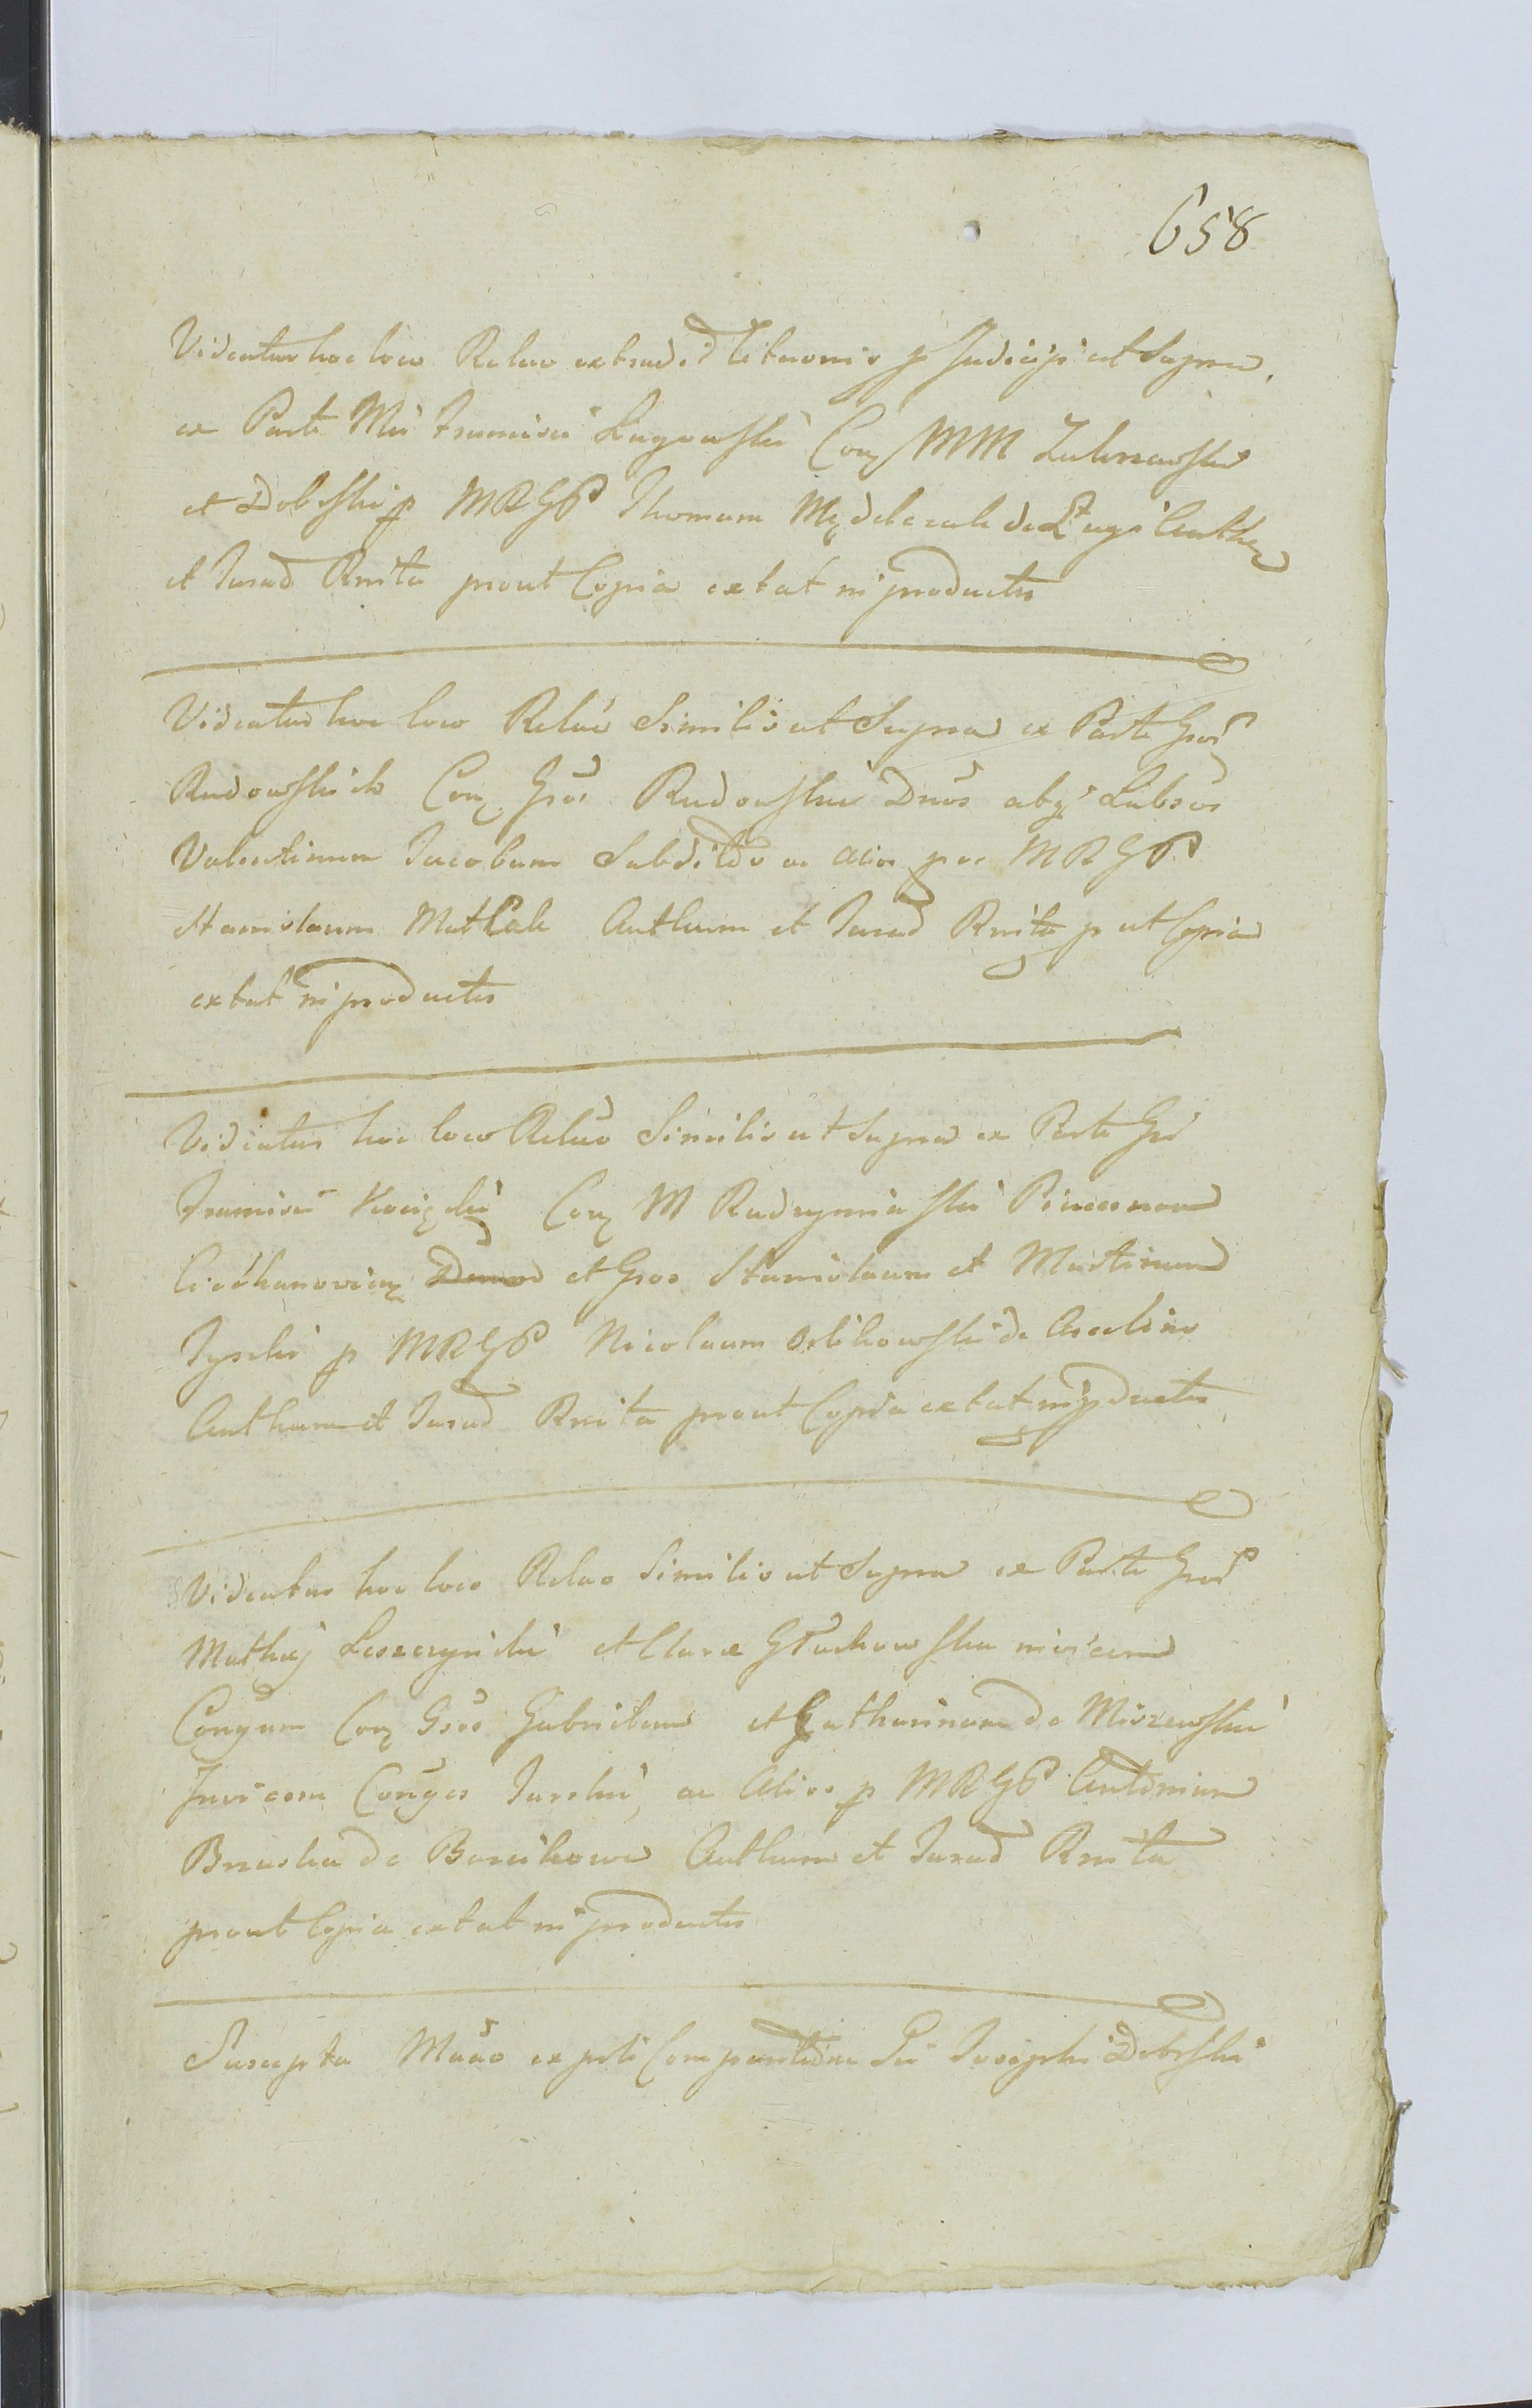 658
Videatur hoc loco Relao extradid Citaonis p Judicijs ut Supra
ex Parte Mci Francisci Lugowski Con MM Zalesewski
et Dobrski p MRGP Thomam Mędelczak de Ługi Authen
et Jurad Rnita prout Copia extat in productis
Videatur hoc loco Relao Similis ut Supra ex Parte Gros
Rudowskich Con Gros Rudowskie Dnos abqs Labsos
Valentinum Jacobum Subditos ac alios per MRGP
Stanislaum Matłak Authum et Jurad Rnita put Copia
extat in productis
Videatur hoc loco Relao Similis ut Supra ex Parte Gsi
Francisci Kocięcki Con M Radzyminski Pincernam
Ciechanovien et Gros Stanislaum et Martinum
Tyscki p MRGP Nicolaum Orlikowski de
Authum et Jurad Rnita prout Copia extat in pductis
Videatur hoc loco Relao Similis ut Supra ex Parte Gros
Mathej Leszczynski et Clarae Głuchowska invicem
Conyum Con Gros Gabrielem et Catharinam de Miszewskie
Invicem Conyes Turski, ac Alios p MRGP Antonium
Bruska de Barcikowo Authum et Jurad Rnita
prout Copia extat in productis
Suscepta Manõ ex prti Comparitione Gsi Josephi Dobrski